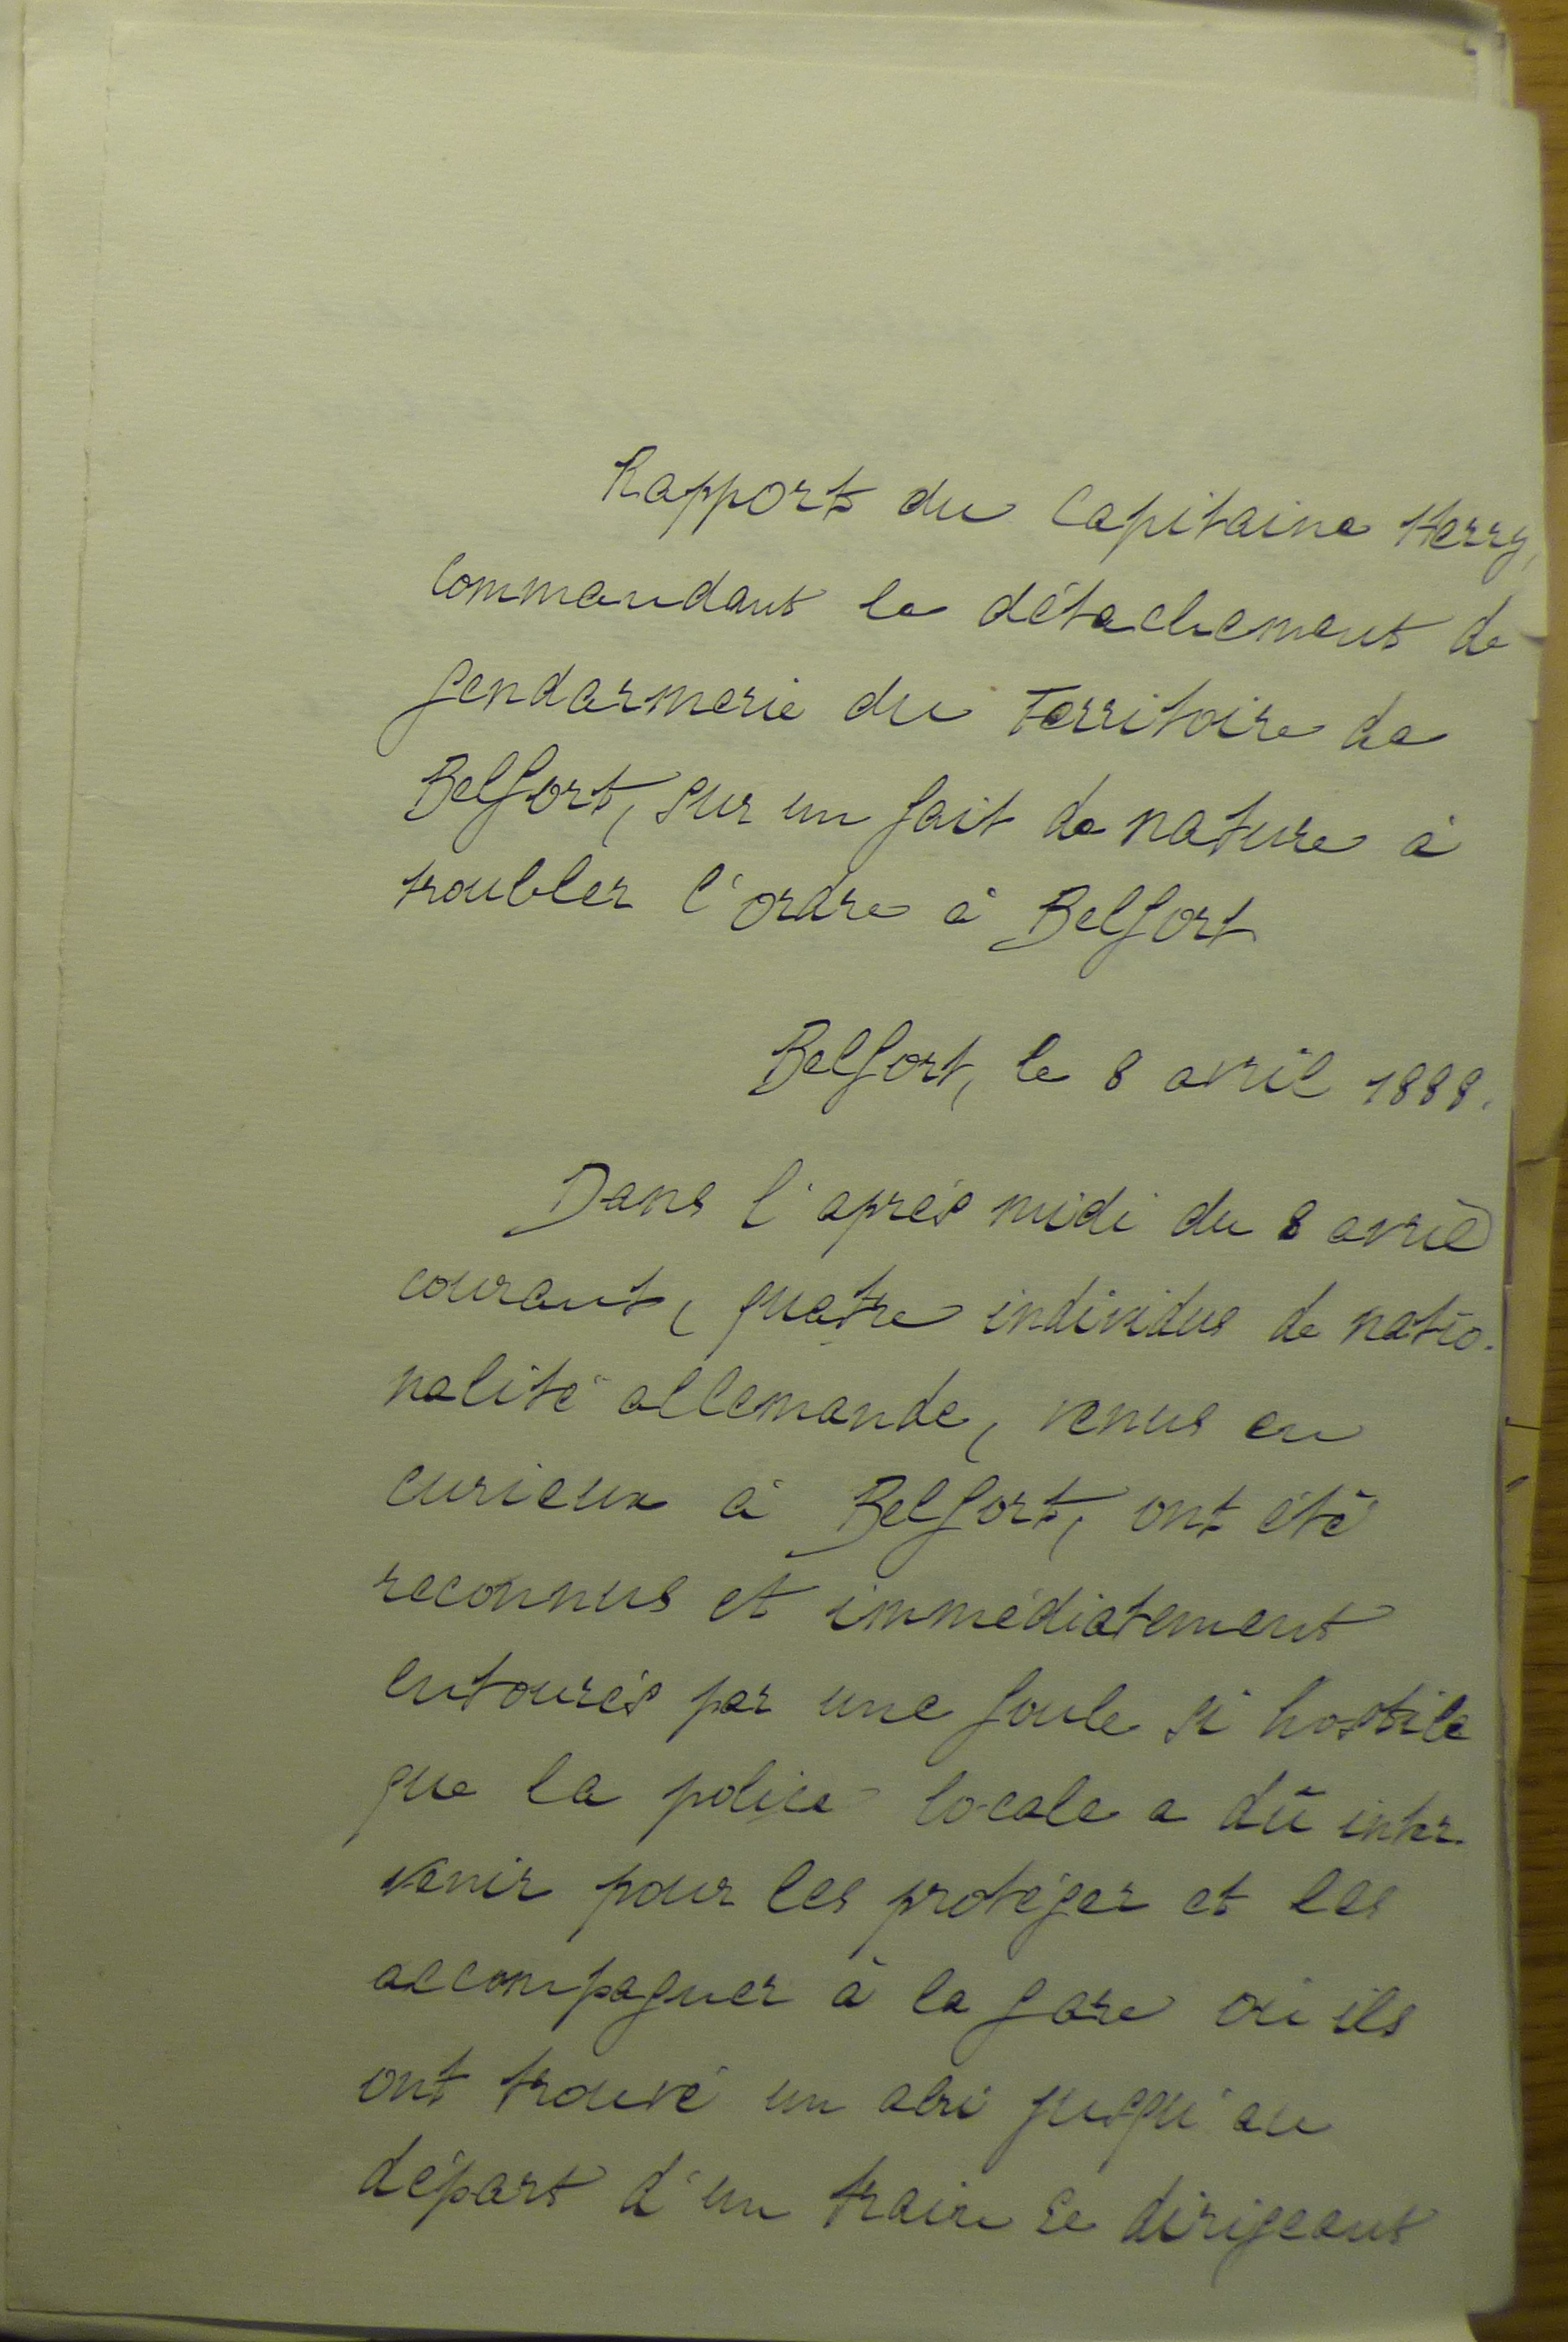 Rapport du Capitaine Herry,
commandant le détachement de
gendarmerie du Territoire de
Belfort, sur un fait de nature à
troubler l'ordre à Belfort
Belfort, le 8 avril 1888.
Dans l'après midi du 8 avril
courant, quatre individus de natio-
nalité allemande, venus en
curieux à Belfort, ont été
reconnus et immédiatement
entourés par une foule si hostile
que la police locale a dû inter-
venir pour les protéger et les
accompagner à la gare où ils
ont trouvé un abri jusqu'au
départ d'un train se dirigeant